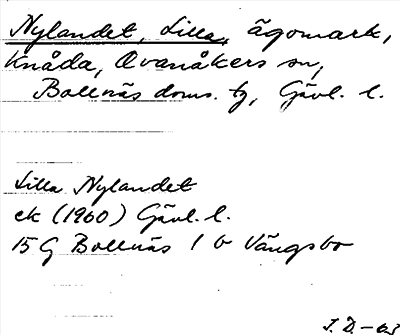 Nylandet, Lilla, ägomark,
Knåda, Ovanåkers sn,
Bollnäs doms. tg, Gävl. l.
Lilla Nylandet
ek (1960) Gävl. l.
15 G Bollnäs 1 b Vängsbo
I. D. - 63